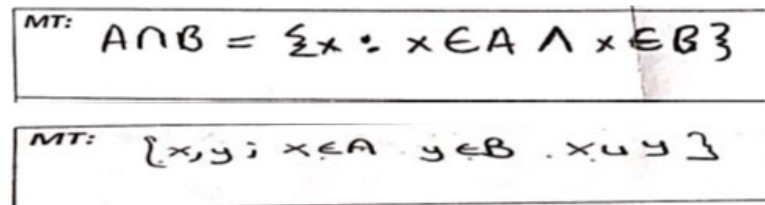 MT: A∩B = {x : x∈A ∧ x∈B}
MT: {x,y; x∈A y∈B . x∪y}